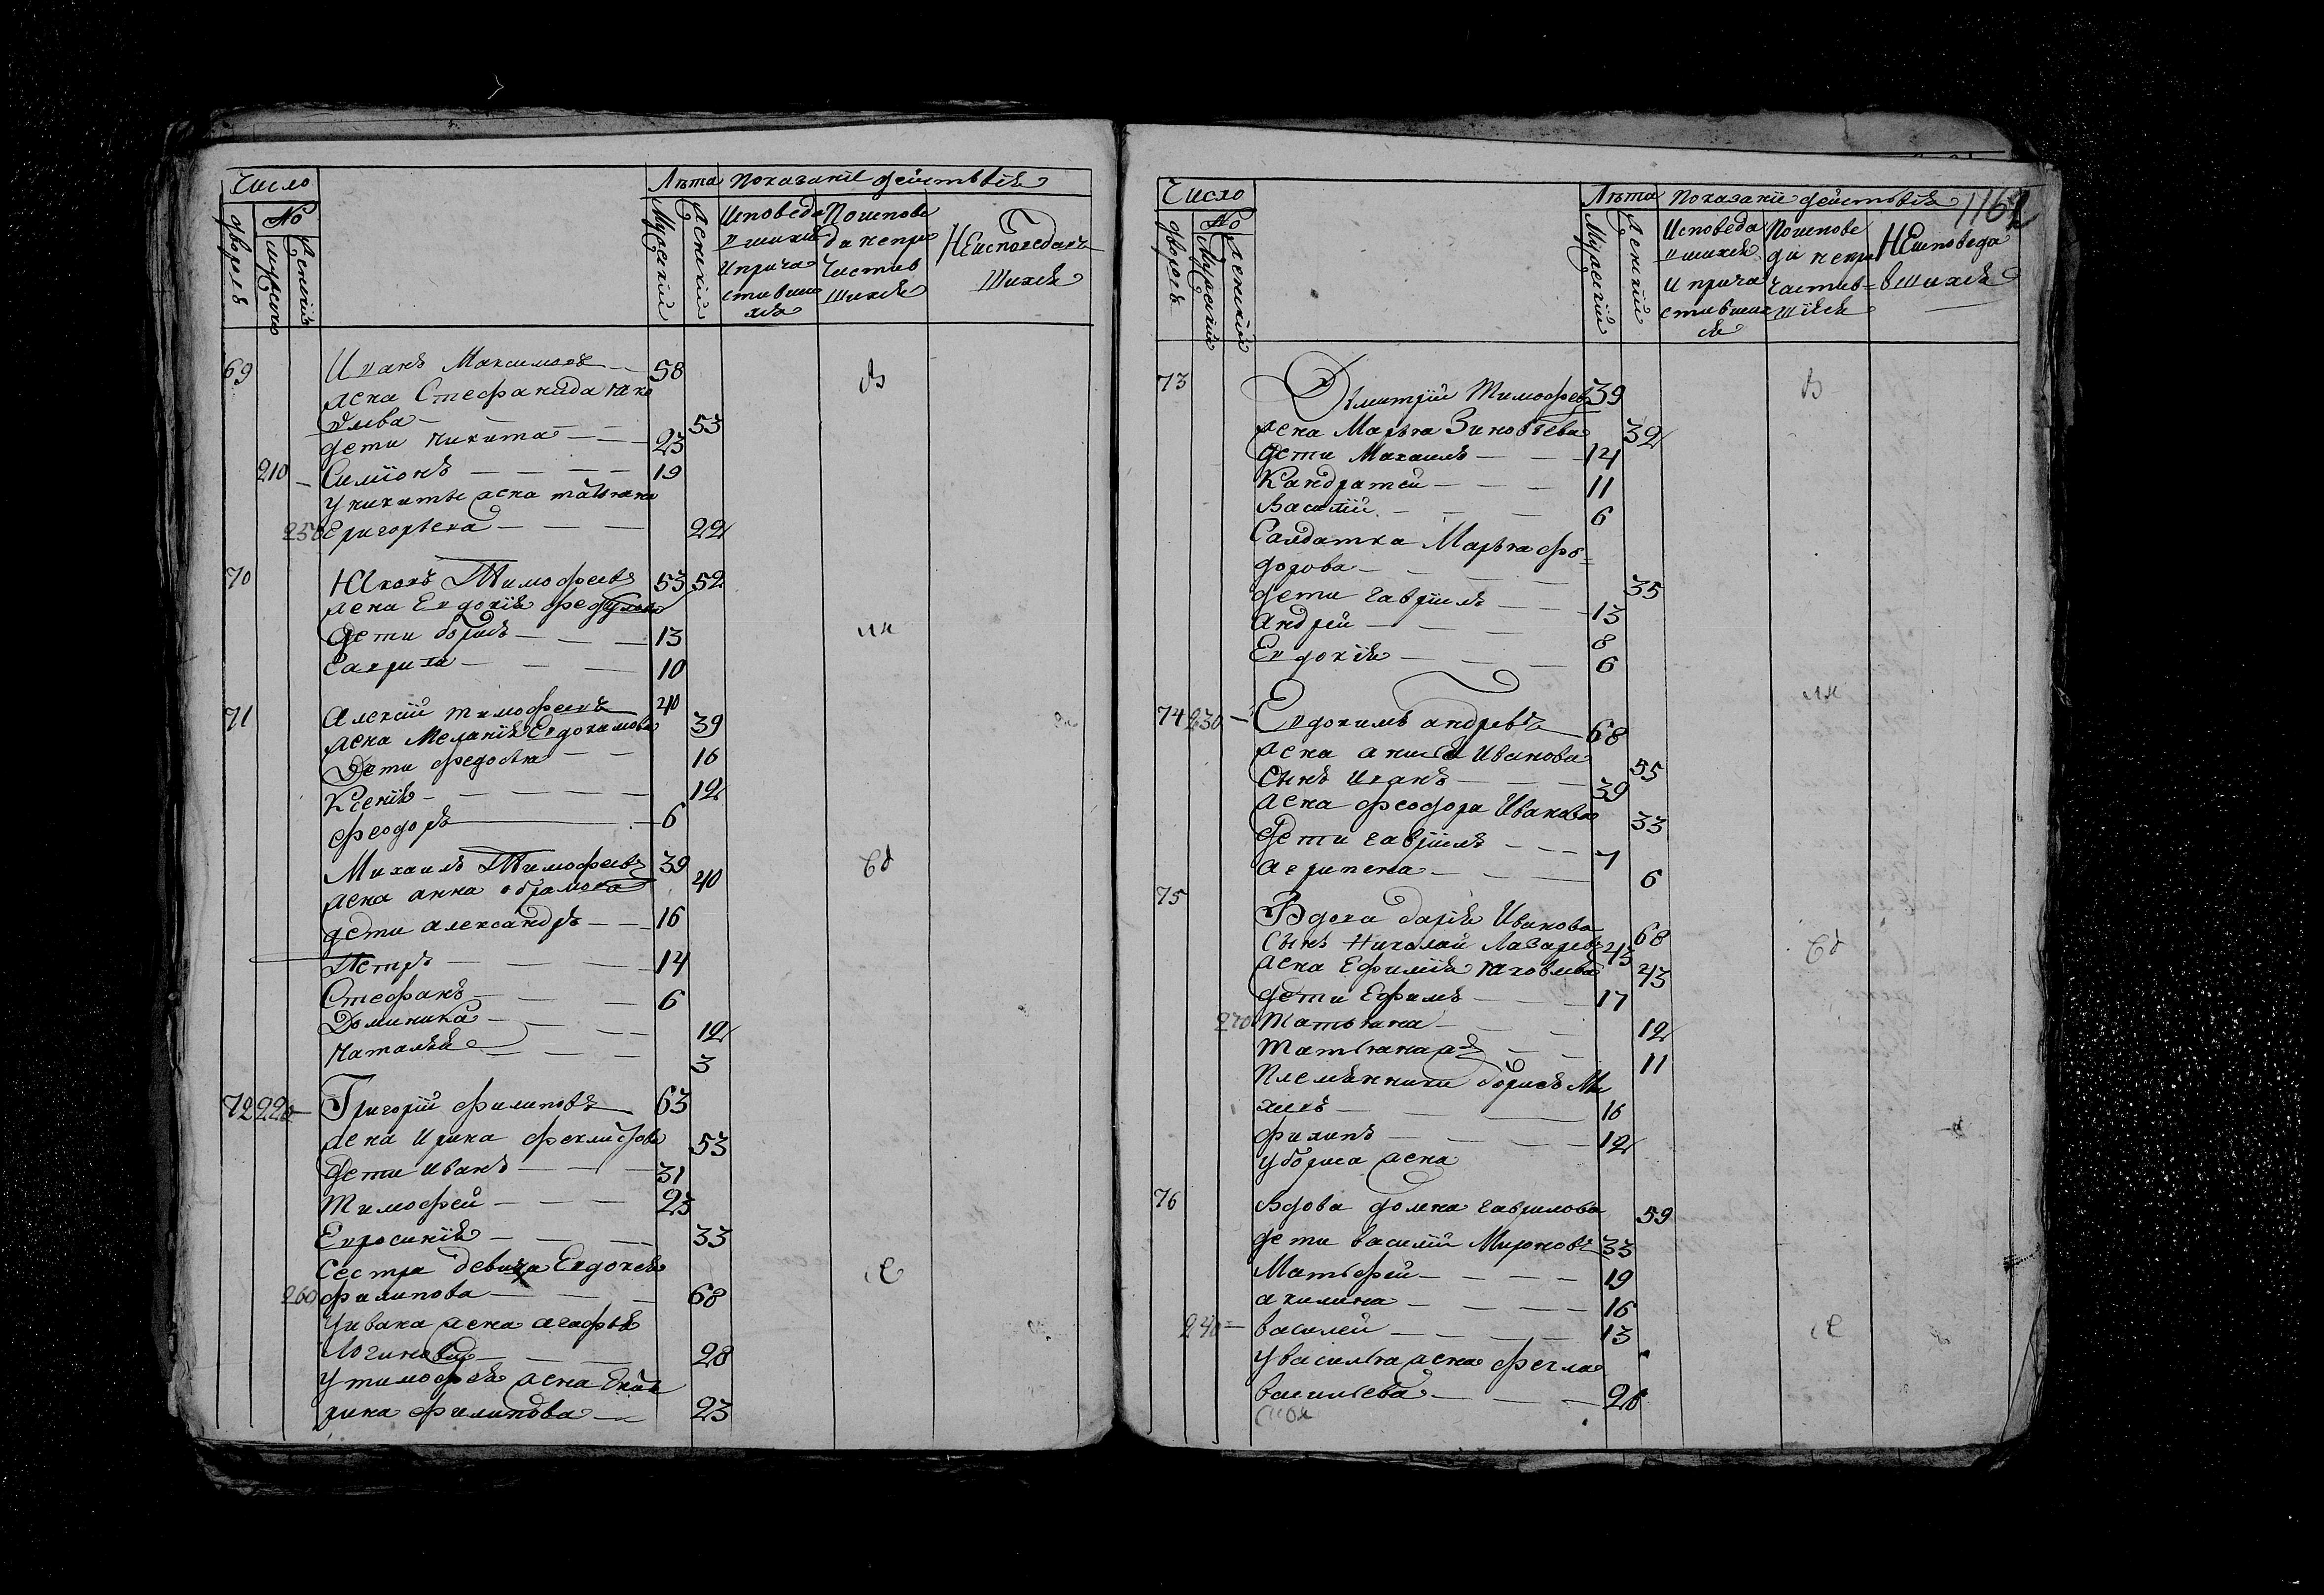 Число
Лѣта Показаніе действія
дворовъ
№
мужеско
женскій
Мужескій
Женскій
Исповеда
вшихся
и прича
стивших
ся
По испове
ди непри
частив
шихся
Неисповедав
шихся
69 Иванъ Максимовъ 58
жена Стефанида Яко
влева 53
дети Никита 23
210 Симионъ 19
У никиты жена татьяна
258 Григорьева 22
70 Яковъ Тимофеевъ 53 52
жена Евдокія Федулова
Дети борисъ 13
Гаврила 10
71 Алексій тимофеевъ 40
жена Меланія Евдокимова 39
Дети федосья 16
Ксенія 12
феодоръ 6
Михаилъ Тимофеевъ 39
жена анна абрамова 40
дети александръ 16
Петръ 14
Стефанъ 6
Доминика 12
Наталья 3
72 220 Григорій филиповъ 63
жена Ирина феклистова 53
Дети иванъ 31
Тимофей 23
Евросинія 33
Сестра девица Евдокея
260 филипова 68
У ивана жена агафья
Логинова 28
У тимофея жена Екате
рина филипова 23
Число
Лѣта Показаніе действія
1162
дворовъ
№
Мужескій
женскій
Мужескій
Женскій
Исповеда
вшихся
и прича
стивших
ся
По испове
ди непри
частив
шихся
Неисповеда
вшихся
73 Димитрій Тимофеевъ 39
жена Марья Зиновьева 32
Дети Михаилъ 14
Кандратей 11
Василій 6
Салдатка Марья фе
дорова 35
дети гавріилъ 13
андрей 8
Евдокія 6
74 230 Евдокимъ андревъ 68
жена анисья Иванова 55
Сынъ иванъ 39
жена феодора Иванова 33
Дети гавріилъ 7
агрипена 6
75 Вдова дарія Иванова 68
Сынъ Николай Лазаревъ 45
жена Ефимія Яковлева 43
дети Ефимъ 17
270 Татьяна 12
Татьяна 11
Племянники борисъ Ми
хеевъ 16
филипъ 12
У бориса жена
76 Вдова домна гаврилова 59
дети василій Мироновъ 33
Матьфей 19
акилина 16
240 василей 13
У василья жена фекла
васильева 26
1162